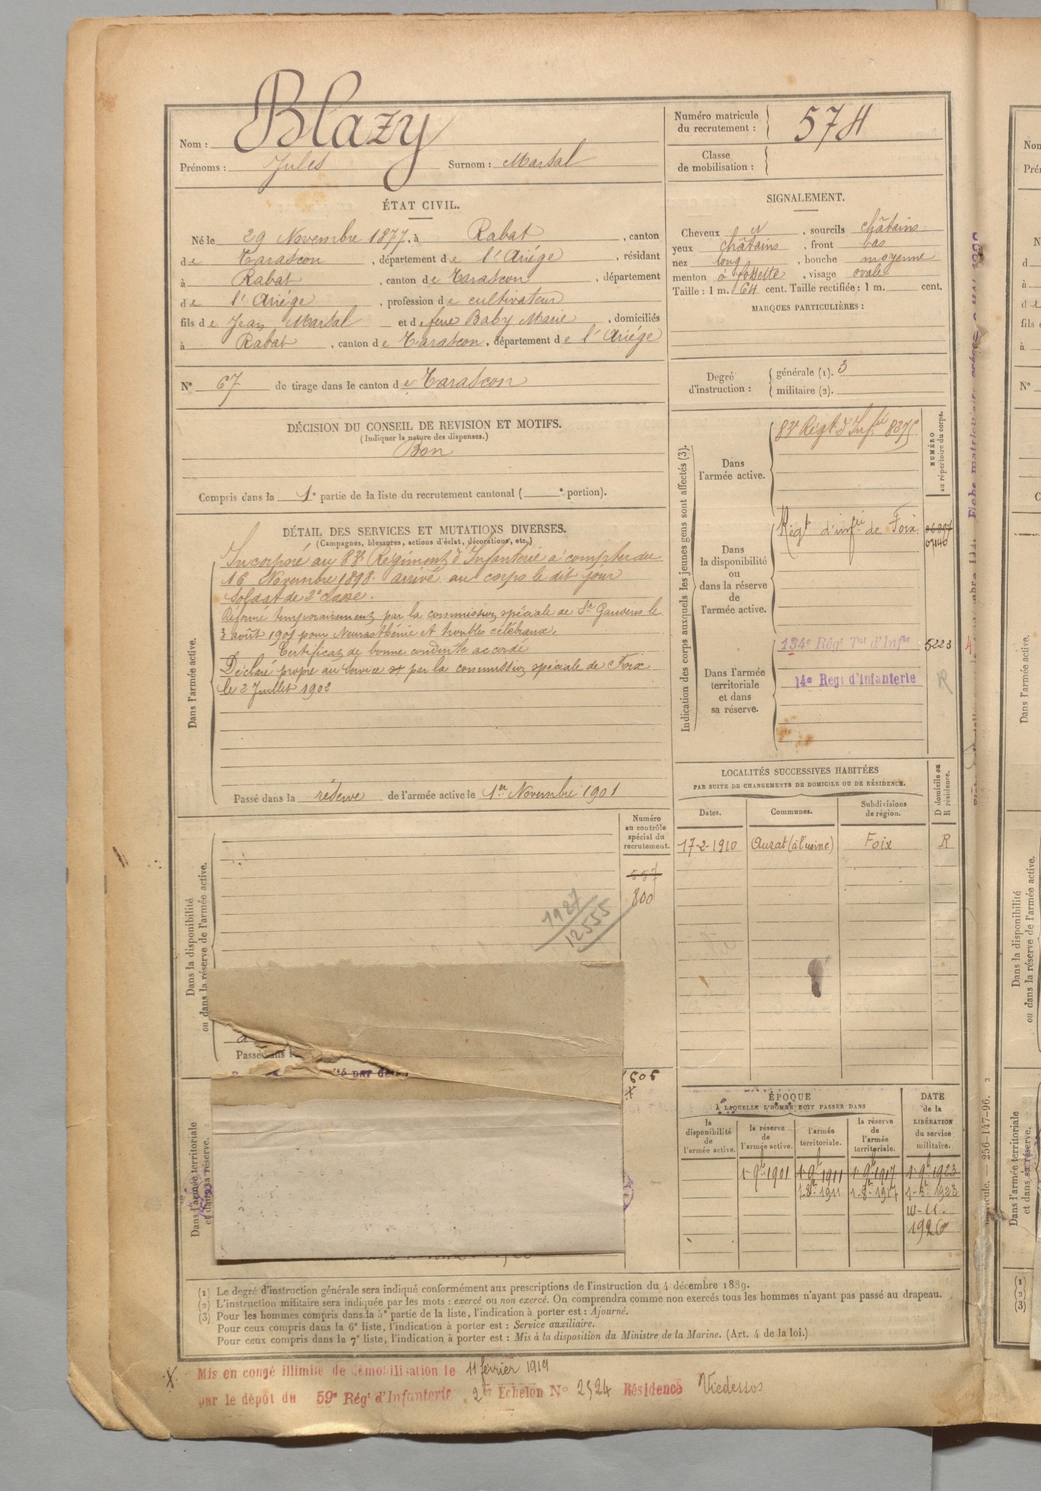 Nom : Blazy
Prénoms : Jules Surnom : Martal
Numéro matricule du recrutement : 574
Classe de mobilisation :
ÉTAT CIVIL.
Né le 29 Novembre 1877, à Rabat, canton
de Tarascon, département de l'Ariége, résidant
à Rabat, canton de Tarascon, département
de l'Ariége, profession de cultivateur
fils de Jean Martal et de feue Baby Marie, domiciliés
à Rabat, canton de Tarascon, département de l'Ariége
N° 67 de tirage dans le canton de Tarascon
SIGNALEMENT.
Cheveux et, sourcils châtains
yeux châtains, front bas
nez long, bouche moyenne
menton à fossette, visage ovale
Taille : 1 m. 64 cent. Taille rectifiée : 1 m. cent.
MARQUES PARTICULIÈRES :
Degré d'instruction : générale (1). 3
militaire (2).
DÉCISION DU CONSEIL DE REVISION ET MOTIFS.
(Indiquer la nature des dispenses.)
Bon
Compris dans la 1e partie de la liste du recrutement cantonal ( e portion).
DÉTAIL DES SERVICES ET MUTATIONS DIVERSES.
(Campagnes, blessures, actions d'éclat, décorations, etc.)
Dans l'armée active.
Incorporé au 83e Régiment d'Infanterie à compter du
16 Novembre 1898 arrivé au corps le dit jour
Soldat de 2e classe.
Réformé temporairement par la commission spéciale de St Gaudens le
3 août 1901 pour Neurasthénie et troubles cérébraux.
Certificat de bonne conduite accordé
Déclaré propre au service par la commission spéciale de Foix
le 2 Juillet 1902
Passé dans la réserve de l'armée active le 1er Novembre 1901
Indication des corps auxquels les jeunes gens sont affectés (3).
NUMÉRO au répertoire du corps.
Dans l'armée active.
83e Régt d'Infie 8375
Dans la disponibilité ou dans la réserve de l'armée active.
Régt d'infie de Foix
Dans l'armée territoriale et dans sa réserve.
134e Régt Tal d'Infie 5223
14e Régt d'Infanterie
R
LOCALITÉS SUCCESSIVES HABITÉES
PAR SUITE DE CHANGEMENTS DE DOMICILE OU DE RÉSIDENCE.
D domicile ou R résidence.
Dates. Communes. Subdivisions de région.
17-2-1910 Auzat (à l'usine) Foix R
Numéro au contrôle spécial du recrutement.
557
800
1927
12555
Dans la disponibilité ou dans la réserve de l'armée active.
Passé dans l
505
Dans l'armée territoriale et dans sa réserve.
ÉPOQUE
À LAQUELLE L'HOMME DOIT PASSER DANS
DATE de la LIBÉRATION du service militaire.
la disponibilité de l'armée active.
la réserve de l'armée active.
l'armée territoriale.
la réserve de l'armée territoriale.
1-9b 1901 1-9b 1911 1-9b 1917 1-9b 1923
1926
(1) Le degré d'instruction générale sera indiqué conformément aux prescriptions de l'instruction du 4 décembre 1889.
(2) L'instruction militaire sera indiquée par les mots : exercé ou non exercé. On comprendra comme non exercés tous les hommes n'ayant pas passé au drapeau.
(3) Pour les hommes compris dans la 5e partie de la liste, l'indication à porter est : Ajourné.
Pour ceux compris dans la 6e liste, l'indication à porter est : Service auxiliaire.
Pour ceux compris dans la 7e liste, l'indication à porter est : Mis à la disposition du Ministre de la Marine. (Art. 4 de la loi.)
X Mis en congé illimité de démobilisation le 11 février 1919
par le dépôt du 59e Régt d'Infanterie 2e Echelon N° 2524 Résidence Vicdessos